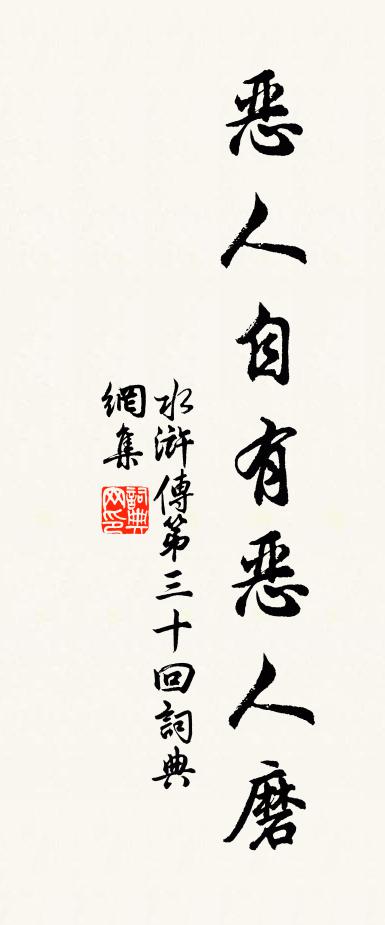 惡人自有惡人磨
水滸傳第三十回詞典
網集
詞典網印